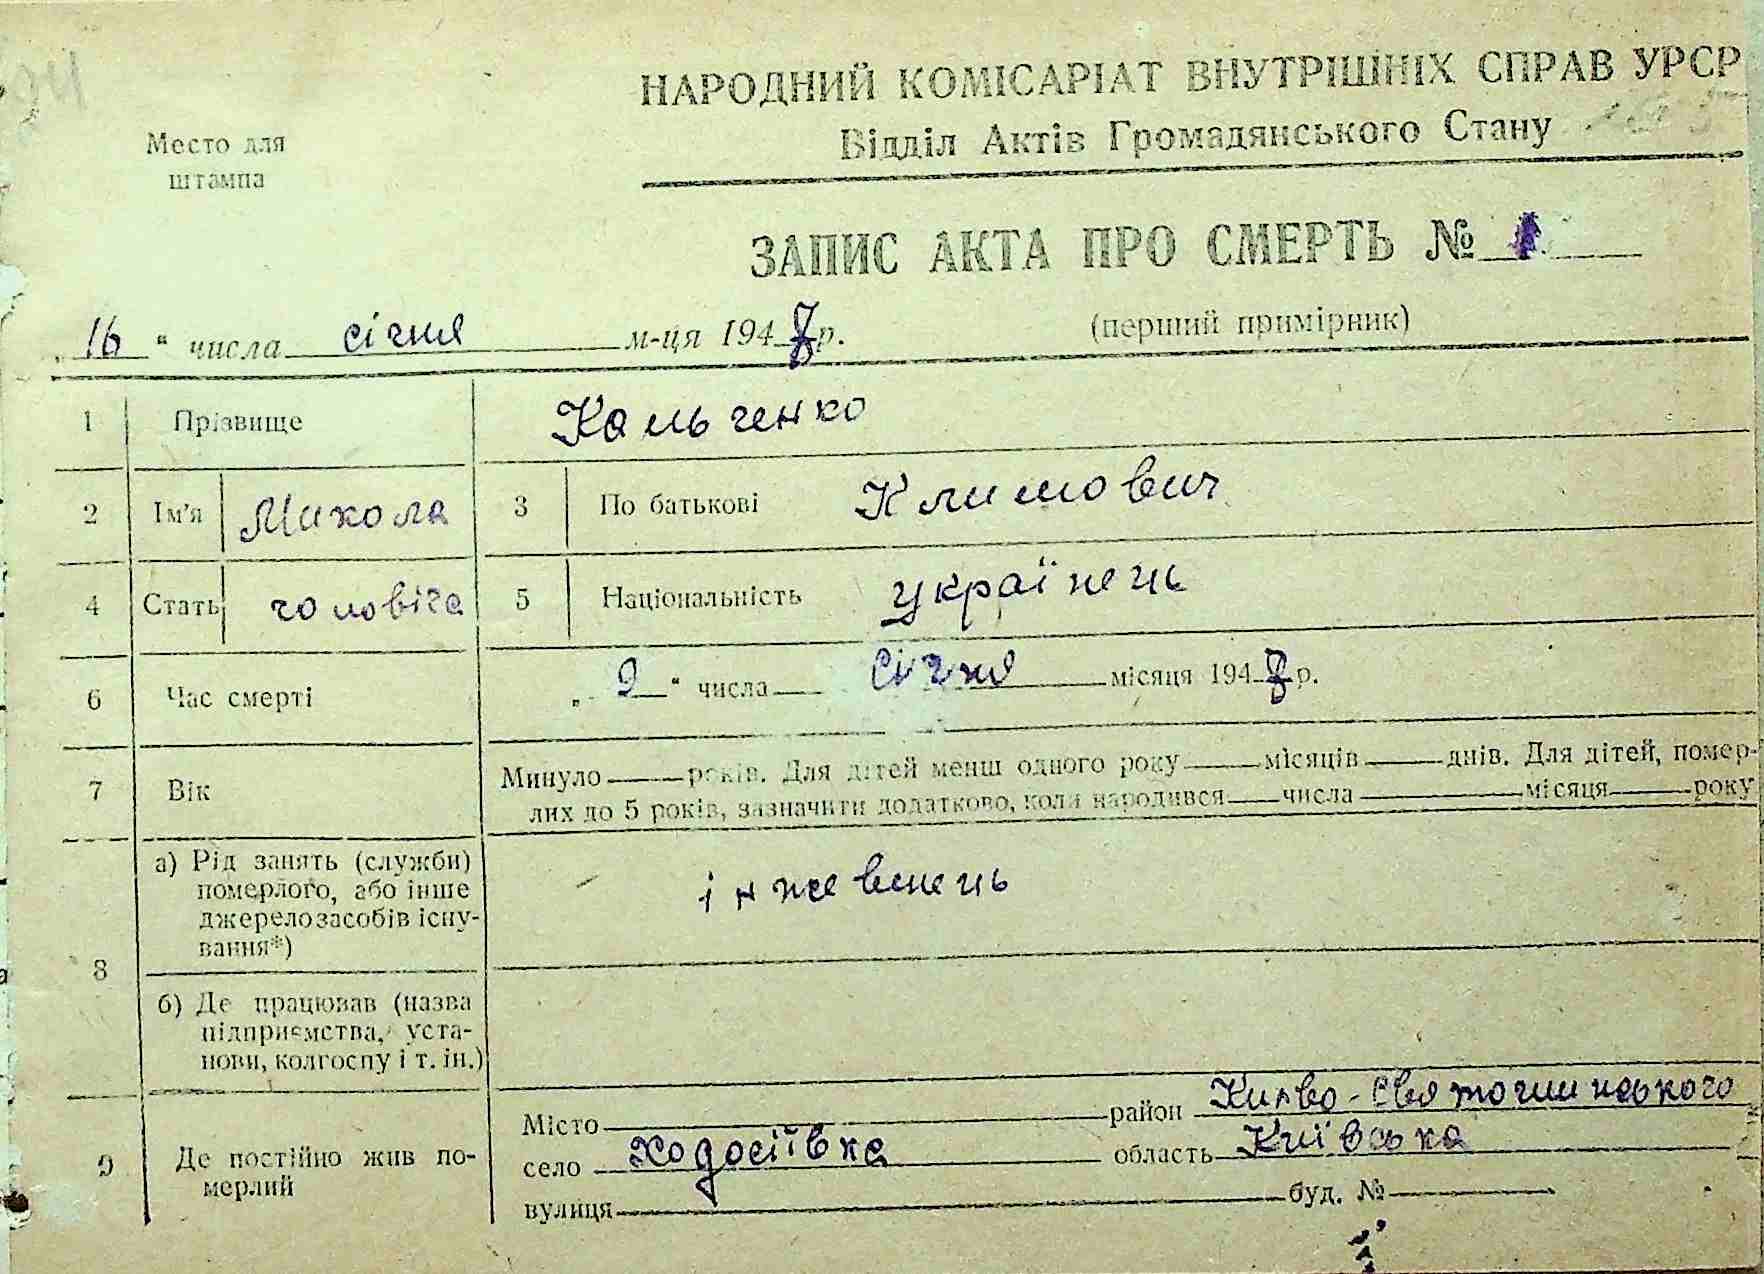 НАРОДНИЙ КОМІСАРІАТ ВНУТРІШНІХ СПРАВ УРСР
Відділ Актів Громадянського Стану
Место для
штампа
ЗАПИС АКТА ПРО СМЕРТЬ № 1
(перший примірник)
„ 16 “ числа січня м-ця 1947 р.
1 Прізвище Кальченко
2 Ім'я Микола 3 По батькові Климович
4 Стать чоловіча 5 Національність українець
6 Час смерті „ 9 “ числа січня місяця 1947 р.
7 Вік Минуло років. Для дітей менш одного року місяців днів. Для дітей, помер-
лих до 5 років, зазначити додатково, коли народився числа місяця року
8 а) Рід занять (служби)
померлого, або інше
джерело засобів існу-
вання*)
і н же венець
б) Де працював (назва
підприємства, уста-
нови, колгоспу і т. ін.)
9 Де постійно жив по-
мерлий
Місто район Києво-Святошинського
село Ходосіївка область Київська
вулиця буд. №